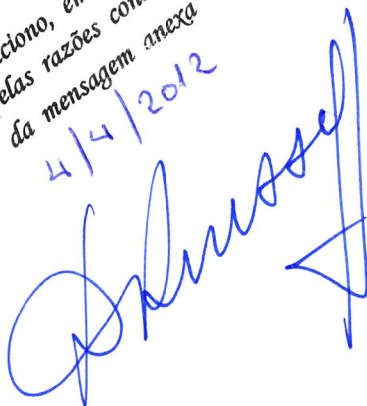 ciono, en
elas razões con
da mensagem anexa
4/4/2012